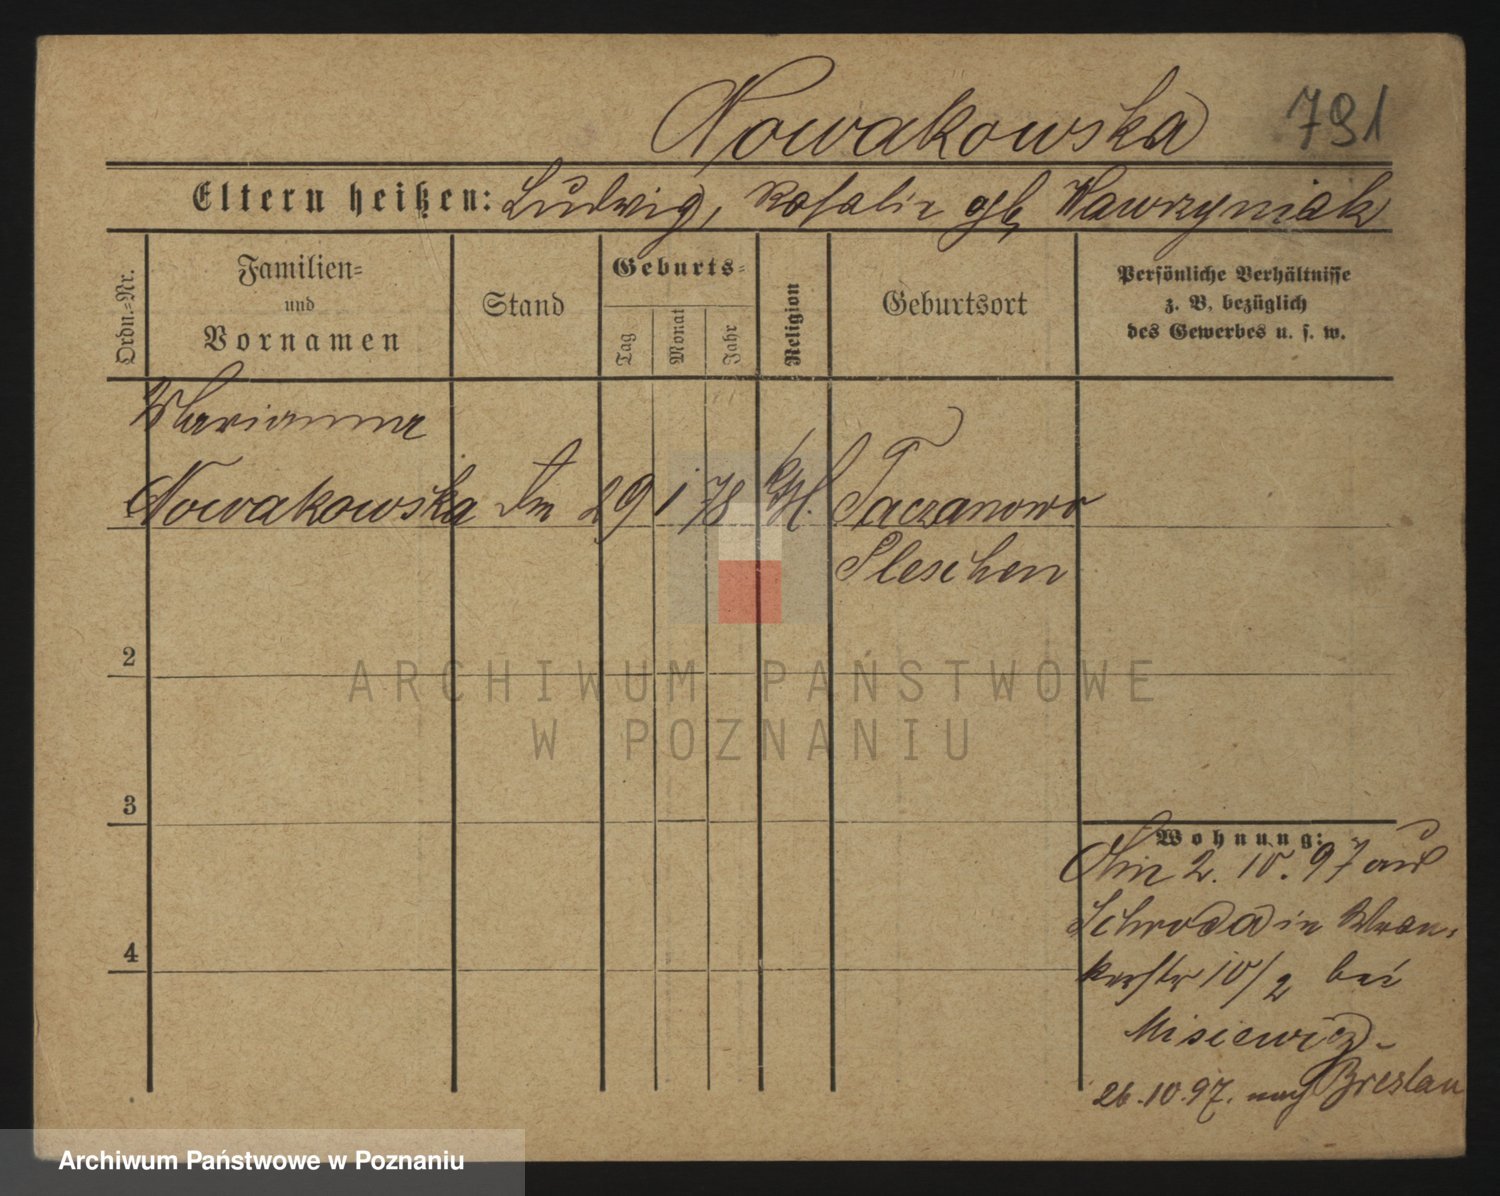 Nowakowska 791
Eltern heißen: Ludwig, Rosalie geb. Wawrzyniak
Ordn.-Nr.
Familien-
und
Vornamen
Stand
Geburts-
Tag
Monat
Jahr
Religion
Geburtsort
Persönliche Verhältnisse
z. B. bezüglich
des Gewerbes u. s. w.
Marianna
Nowakowska 29 1 78 kth. Taczanowo
Pleschen
2
3
4
Wohnung:
2. 10. 97 aus
Schroda in Wron-
kerstr 10/2 bei
Misiewicz
26.10.97. nach Breslau
ARCHIWUM PAŃSTWOWE
W POZNANIU
Archiwum Państwowe w Poznaniu